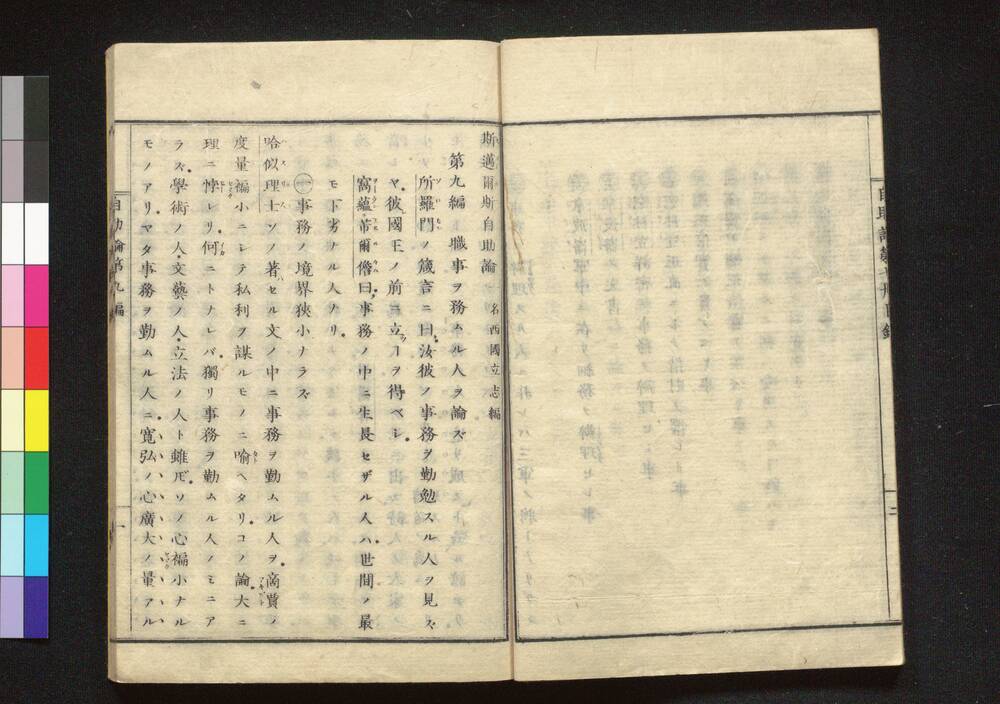 自助論第九冊目錄
二
斯邁爾斯自助論 一名西國立志編
第九編 職事ヲ務ムル人ヲ論ズ
所羅門ノ箴言ニ曰汝彼ノ事務ヲ勤勉スル人ヲ見ズ
ヤ彼國王ノ前ニ立コヲ得ベシ
窩蘊蒂爾儋曰事務ノ中ニ生長セザル人ハ世間ノ最
モ下劣ナル人ナリ
㊀事務ノ境界狹小ナラズ
哈似理士ソノ著セル文ノ中ニ事務ヲ勤ムル人ヲ商賈ノ
度量褊小ニシテ私利ヲ謀ルモノニ喻ヘタリコノ論大ニ
理ニ悖レリ何ニトナレバ獨リ事務ヲ勤ムル人ノミニア
ラズ學術ノ人文藝ノ人立法ノ人ト雖𪜈ソノ心褊小ナル
モノアリマタ事務ヲ勤ムル人ニ寬弘ノ心廣大ノ量アル
自助論第九編
一